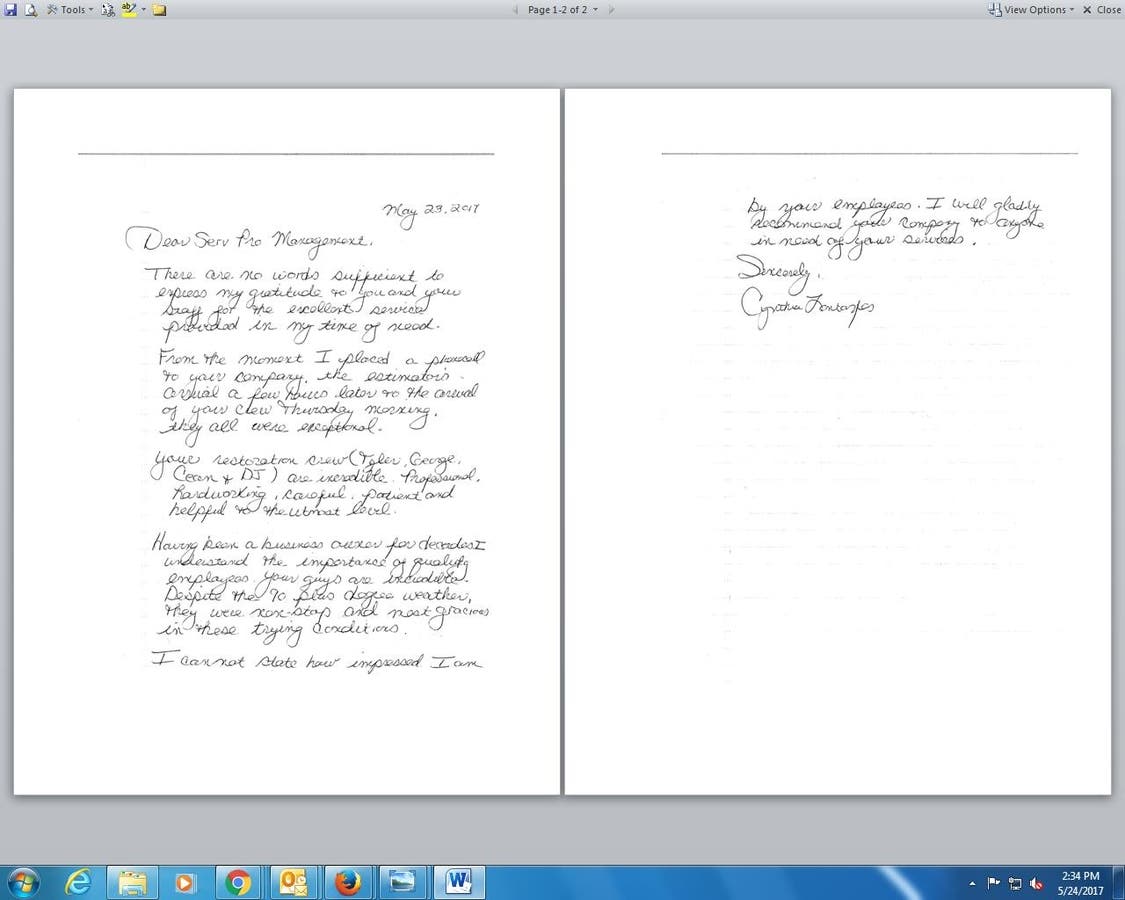 Tools
Page 1-2 of 2
View Options
Close
May 23, 2017
Dear Serv Pro Management,
There are no words sufficient to
express my gratitude to you and your
staff for the excellent service
provided in my time of need.
From the moment I placed a phonecall
to your company, the estimators
arrival a few hours later to the arrival
of your crew Thursday morning,
they all were exceptional.
Your restoration crew (Tyler, George,
& DJ) are incredible. Professional,
hardworking, careful, patient and
helpful to the utmost level.
Having been a business owner for decades I
understand the importance of quality
employees. Your guys are incredible.
Despite the 90 plus degree weather,
they were non-stop and most gracious
in these trying conditions.
I cannot state how impressed I am
by your employees. I will gladly
recommend your company to anyone
in need of your services.
Sincerely,
Cynthia
2:34 PM
5/24/2017